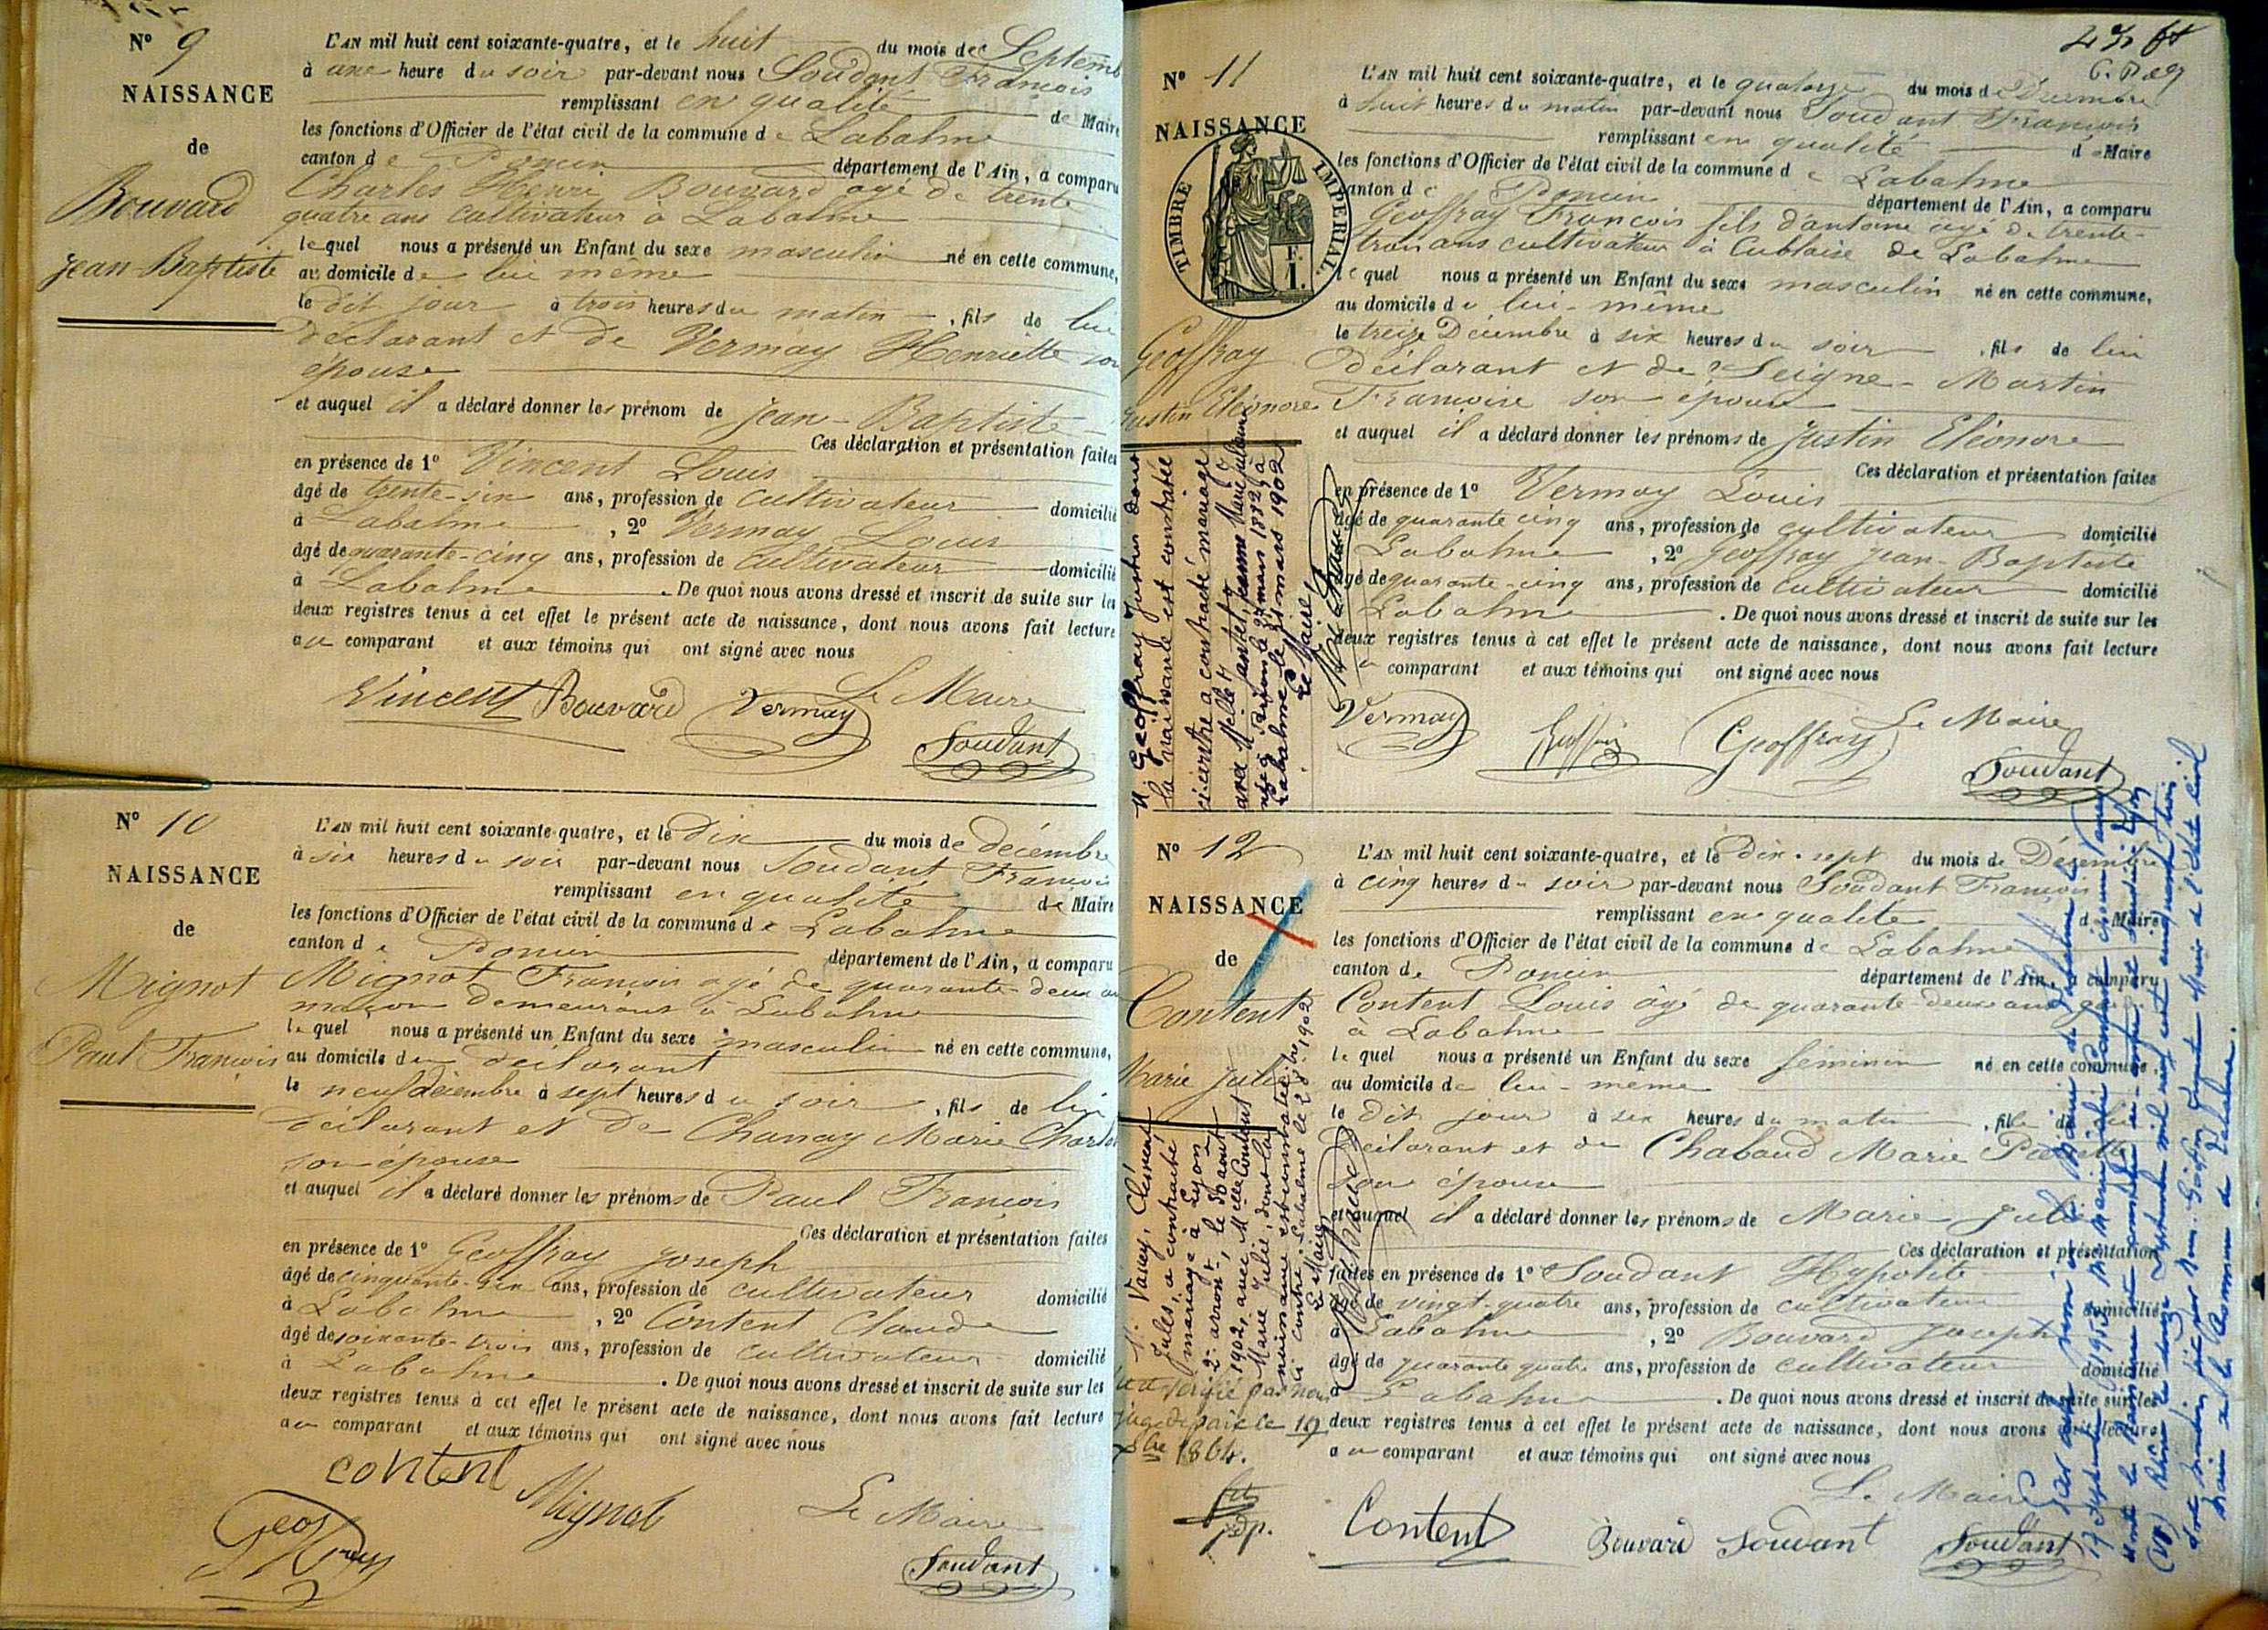 N° 9
NAISSANCE
de
Bouvard
Jean-Baptiste
L'AN mil huit cent soixante-quatre, et le huit du mois de Septemb
à une heure du soir par-devant nous Soudant François
remplissant en qualité de Maire
les fonctions d'Officier de l'état civil de la commune de Labalme
canton de Poncin département de l'Ain, a comparu
Charles Henri Bouvard agé de trente
quatre ans cultivateur à Labalme
lequel nous a présenté un Enfant du sexe masculin né en cette commune,
au domicile de lui même
le dit jour à trois heures du matin, fils de lui
déclarant et de Vermay Henriette son
épouse
et auquel il a déclaré donner les prénom de Jean-Baptiste
Ces déclaration et présentation faites
en présence de 1° Vincent Louis
âgé de trente-six ans, profession de cultivateur domicilié
à Labalme, 2° Vermay Louis
âgé de quarante-cinq ans, profession de cultivateur domicilié
à Labalme. De quoi nous avons dressé et inscrit de suite sur les
deux registres tenus à cet effet le présent acte de naissance, dont nous avons fait lecture
au comparant et aux témoins qui ont signé avec nous
Vincent Bouvard Vermay Le Maire
Soudant
N° 10
NAISSANCE
de
Mignot
Paul François
L'AN mil huit cent soixante-quatre, et le dix du mois de décembre
à six heures du soir par-devant nous Soudant François
remplissant en qualité de Maire
les fonctions d'Officier de l'état civil de la commune de Labalme
canton de Poncin département de l'Ain, a comparu
Mignot François agé de quarante-deux an
maçon demeurant à Labalme
lequel nous a présenté un Enfant du sexe masculin né en cette commune,
au domicile du déclarant
le neuf décembre à sept heures du soir, fils de lui
déclarant et de Chanay Marie Charlo
son épouse
et auquel il a déclaré donner les prénoms de Paul François
Ces déclaration et présentation faites
en présence de 1° Geoffray Joseph
âgé de cinquante-six ans, profession de cultivateur domicilié
à Labalme, 2° Content Claude
âgé de soixante-trois ans, profession de cultivateur domicilié
à Labalme. De quoi nous avons dressé et inscrit de suite sur les
deux registres tenus à cet effet le présent acte de naissance, dont nous avons fait lecture
au comparant et aux témoins qui ont signé avec nous
content Mignot Le Maire
Geoffray Soudant
N° 11
NAISSANCE
TIMBRE IMPERIAL
F.
1.
Geoffray
Justin Eléonore
L'AN mil huit cent soixante-quatre, et le quatorze du mois de Décembre
à huit heures du matin par-devant nous Soudant François
remplissant en qualité de Maire
les fonctions d'Officier de l'état civil de la commune de Labalme
canton de Poncin département de l'Ain, a comparu
Geoffray François fils d'antoine agé de trente-
trois ans cultivateur à Cublaise de Labalme
lequel nous a présenté un Enfant du sexe masculin né en cette commune,
au domicile de lui-même
le treize Décembre à six heures du soir, fils de lui
déclarant et de Seigne-Martin
Françoise son épouse
et auquel il a déclaré donner les prénoms de Justin Eléonore
Ces déclaration et présentation faites
en présence de 1° Vermay Louis
âgé de quarante cinq ans, profession de cultivateur domicilié
Labalme, 2° Geoffray Jean-Baptiste
âgé de quarante-cinq ans, profession de cultivateur domicilié
Labalme. De quoi nous avons dressé et inscrit de suite sur les
deux registres tenus à cet effet le présent acte de naissance, dont nous avons fait lecture
au comparant et aux témoins qui ont signé avec nous
Vermay Geoffray Le Maire
Soudant
M. Geoffray Justin dont
la naissance est constatée
ci-contre a contracté mariage
avec Melle
Labalme le mars 1902
Le Maire,
N° 12
NAISSANCE
de
Content
Marie Julie
L'AN mil huit cent soixante-quatre, et le dix-sept du mois de Décembre
à cinq heures du soir par-devant nous Soudant François
remplissant en qualité de Maire
les fonctions d'Officier de l'état civil de la commune de Labalme
canton de Poncin département de l'Ain, a comparu
Content Louis âgé de quarante-deux ans
à Labalme
lequel nous a présenté un Enfant du sexe féminin né en cette commune,
au domicile de lui-même
le dit jour à six heures du matin, fille de lui
déclarant et de Chabaud Marie Pierrette
son épouse
et auquel il a déclaré donner les prénoms de Marie Julie
Ces déclaration et présentation
faites en présence de 1° Soudant Hypolite
âgé de vingt-quatre ans, profession de cultivateur domicilié
à Labalme, 2° Bouvard Joseph
âgé de quarante quatre ans, profession de cultivateur domicilié
à Labalme. De quoi nous avons dressé et inscrit de suite sur les
deux registres tenus à cet effet le présent acte de naissance, dont nous avons fait lecture
au comparant et aux témoins qui ont signé avec nous
Le Maire
Content Bouvard Soudant Soudant
Jules, a contracté
mariage à Lyon
2e arront, le août
1902, avec Melle Content
Marie Julie, dont la
naissance est constatée
ci contre. Labalme le 28 1902
Le Maire
vérifié par nous
juge de paix le 19
1864.